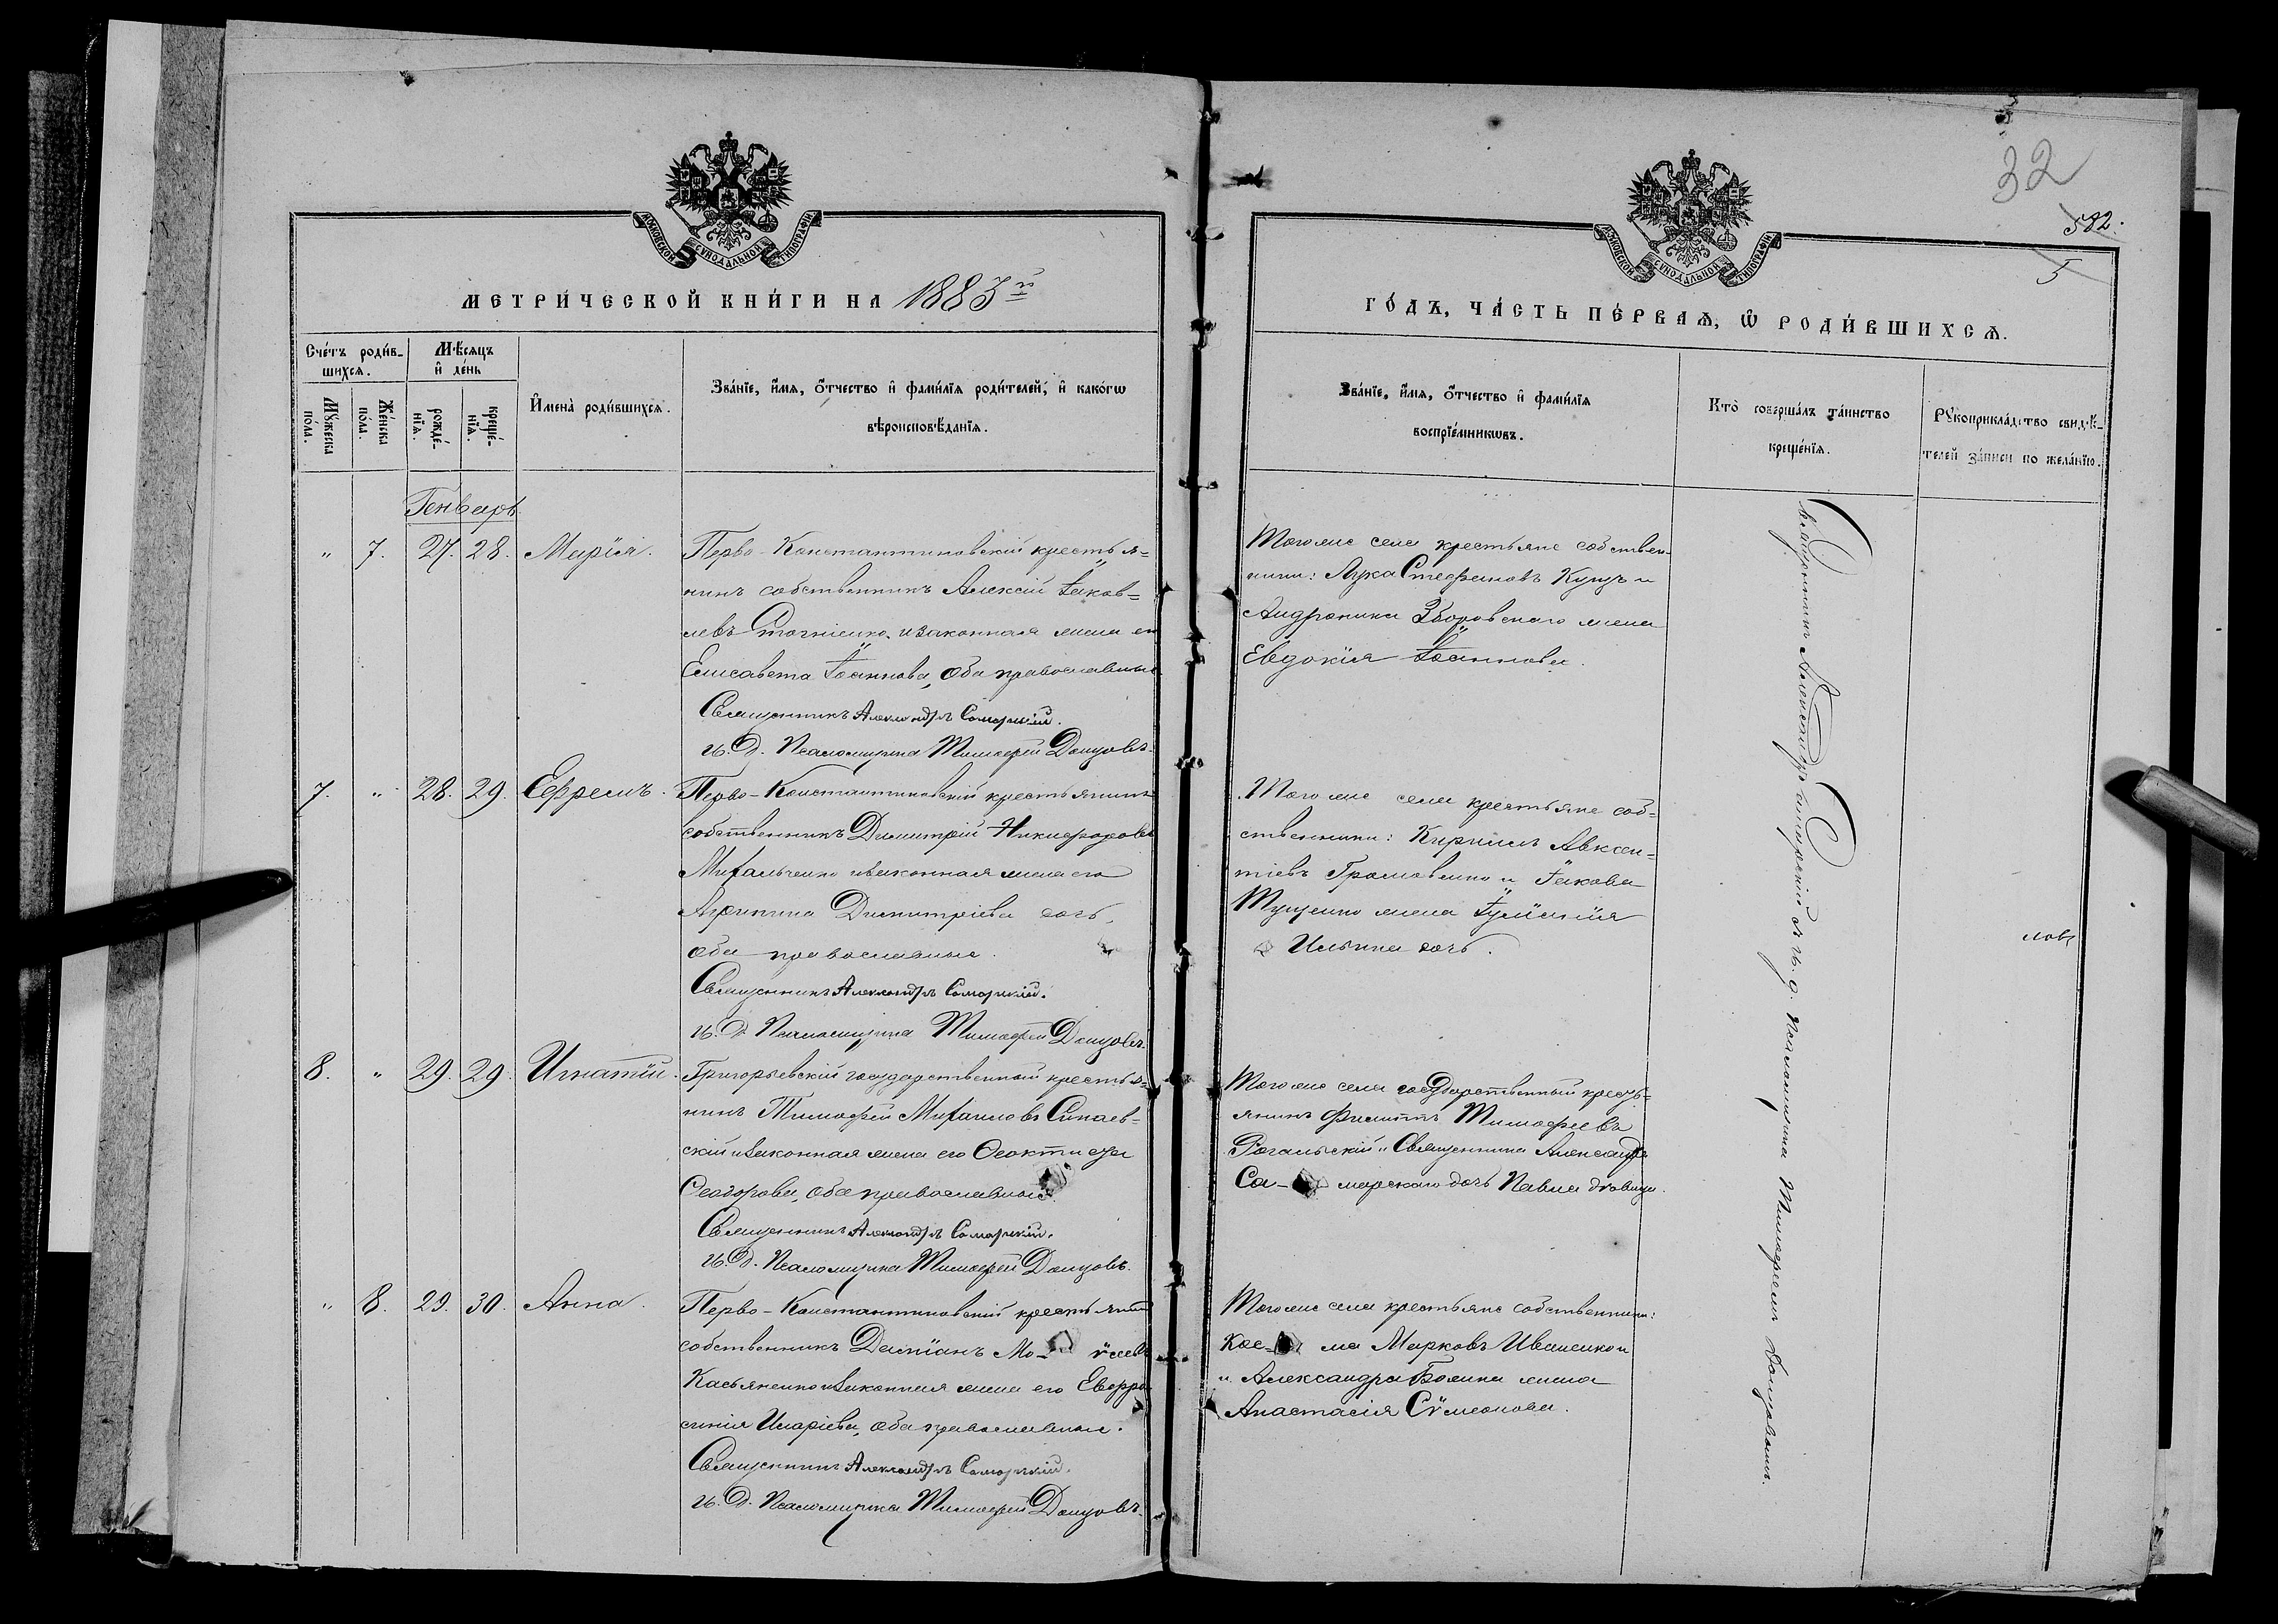 МОСКОВСКОЙ СѴНОДАЛЬНОЙ ТИПОГРАФІИ
МЕТРИ́ЧЕСКОЙ КНИ́ГИ НА 1883й
Сче́тъ роди́в-
шихся.
Мѣ́сяцъ
и҆ де́нь
Мꙋ́жеска
по́ла.
Же́нска
по́ла.
рожде́-
нїѧ.
креще́-
нїѧ.
И҆мена̀ роди́вшихсѧ.
Зва́нїе, и҆́мѧ, ѻ҆́тчество и҆ фами́лїѧ роди́телей, и҆ како́гѡ
вѣроисповѣ́данїѧ.
Генварь
" 7. 27. 28. Марія.
Перво-Константиновскій крестья=
нинъ собственникъ Алексій Іаков=
левъ Стогніенко, и законная жена его
Елисавета Іоаннова, оба православные
Священникъ Александръ Самарскій.
И. Д. Псаломщика Тимофей Донцовъ.
7. " 28. 29. Ефремъ.
Перво-Константиновскій крестьянинъ
собственникъ Димитрій Никифоровъ
Михальченко и законная жена его
Агрипина Димитріева дочь,
оба православные.
Священникъ Александръ Самарскій.
И. Д. Псаломщика Тимофей Донцовъ.
8. " 29. 29. Игнатій.
Григорьевскій государственный крестья=
нинъ Тимофей Михаиловъ Синаев=
скій и законная жена его Феоктиста
Феодорова, оба православные.
Священникъ Александръ Самарскій.
И. Д. Псаломщика Тимофей Донцовъ.
" 8. 29. 30. Анна.
Перво-Константиновскій крестьянинъ
собственникъ Даміанъ Мо- ѵсеевъ
Касьяненко и законная жена его Евфро
синія Иларіева, оба православные.
Священникъ Александръ Самарскій.
И. Д. Псаломщика Тимофей Донцовъ.
32
582.
5
МОСКОВСКОЙ СѴНОДАЛЬНОЙ ТИПОГРАФІИ
ГО́ДЪ, ЧА́СТЬ ПЕ́РВАѦ, Ѽ РОДИ́ВШИХСѦ.
Зва́нїе, и҆́мѧ, ѻ҆́тчество и҆ фами́лїѧ
воспрїе́мникѡвъ.
Кто̀ соверша́лъ та́инство
креще́нїѧ.
Рꙋкоприкла́дство свидѣ́-
телей за́писи по жела́нїю.
Того же села крестьяне собствен-
ники: Лука Стефановъ Куцъ и
Андроника Зборовскаго жена
Евдокія Іоаннова.
Того же села крестьяне соб=
ственники: Кириллъ Авксен=
тіевъ Громовенко и Іакова
Тущенко жена Іуліанія
Ильина дочь.
Того же села государственный кресть=
янинъ Филиппъ Тимофеевъ
Рогальскій и Священника Александра
Са- марскаго дочь Павла дѣвица.
Того же села крестьяне собственники:
Кос- ма Марковъ Иваненко и
и Александра Божина жена
Анастасія Сѵмеонова.
Священникъ Александръ Самарскій съ и. д. Псаломщика Тимофеемъ Донцовымъ.
ловъ